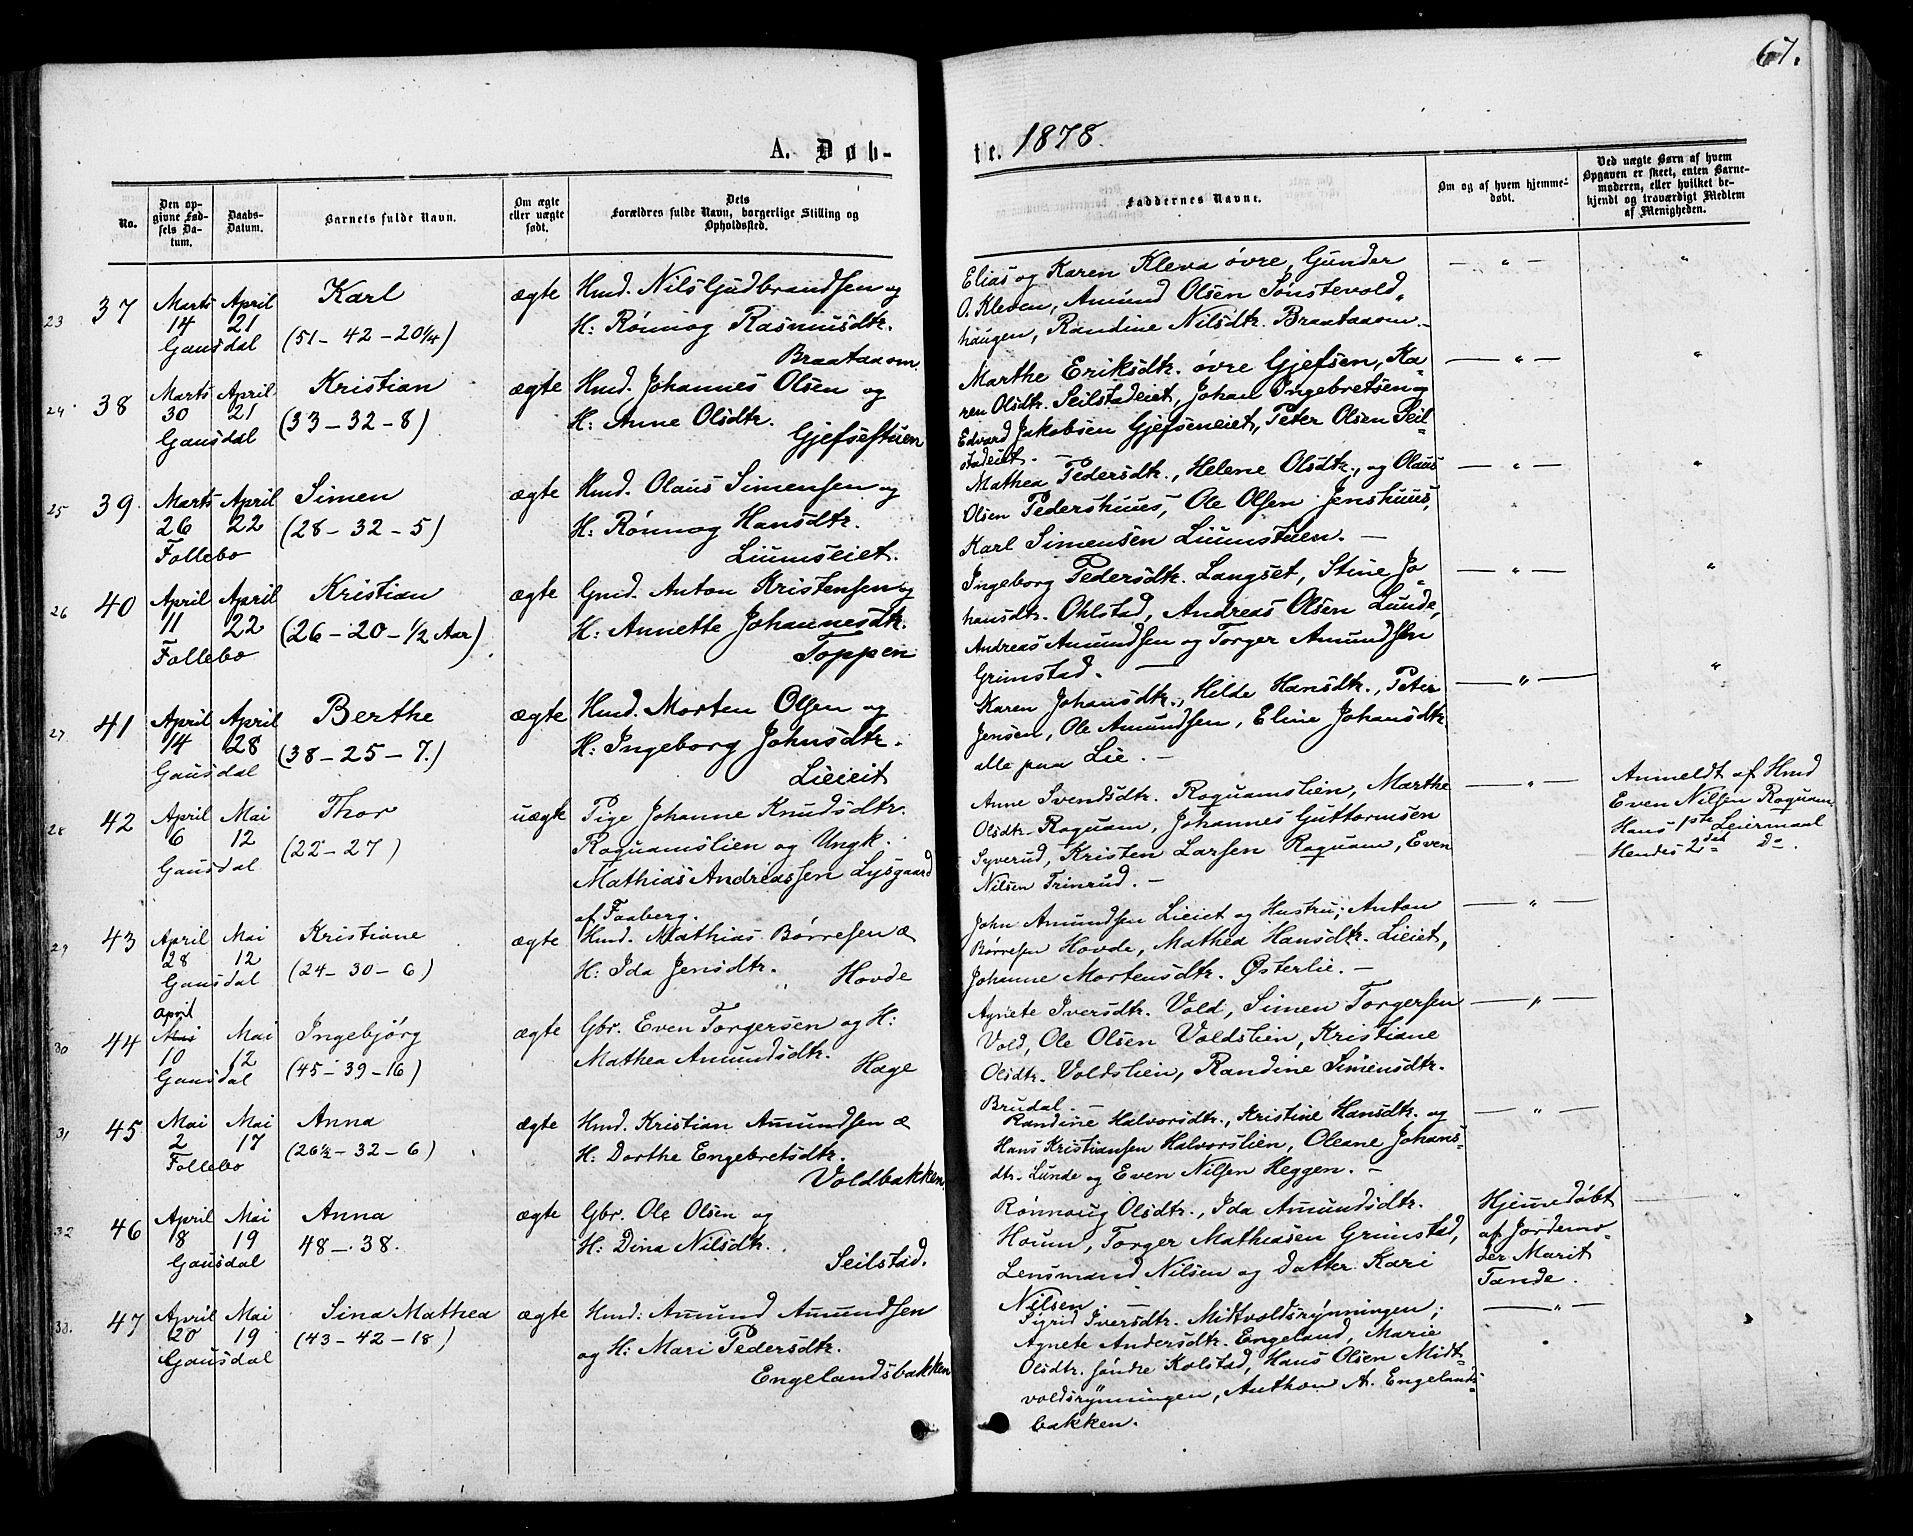 67.
A. Døb-
te. 1878.
No.
Den opgivne Fødsels Datum.
Daabs-Datum.
Barnets fulde Navn.
Om ægte eller uægte født.
Dets Forældres fulde Navn, borgerlige Stilling og Opholdssted.
Faddernes Navne.
Om og af hvem hjemmedøbt.
Ved uægte Børn af hvem Opgaven er skeet, enten Barnemoderen, eller hvilket bekjendt og troværdigt Medlem af Menigheden.
23 37 Marts 14 Gausdal April 21
Karl
(51 - 42 - 20 1/4)
ægte
Hmd. Nils Gudbrandsen og
H: Rønnog Rasmusdtr.
Braataaom
Elias og Karen Kleva øvre, Gunder
O. Kleven, Amund Olsen Sønstevold-
haugen, Randine Nilsdtr. Braataaom. -
— " —
"
24 38 Marts 30 Gausdal April 21
Kristian
(33 - 32 - 8)
ægte
Hmd. Johannes Olsen og
H: Anne Olsdtr.
Gjefsestuen
Marthe Eriksdtr. øvre Gjefsen, Ka-
ren Olsdtr. Seilstadeiet, Johan Ingebretsen og
Edvard Jakobsen Gjefseneiet, Peter Olsen Seil-
stadeiet. -
— " —
"
25 39 Marts 26 Follebo April 22
Simen
(28 - 32 - 5)
ægte
Hmd. Olaus Simensen og
H: Rønnog Hansdtr.
Liumseiet.
Mathea Pedersdtr., Helene Olsdtr., og Olaus
Olsen Pedershuus, Ole Olsen Jenshuus,
Karl Simensen Liumstuen. -
— " —
"
26 40 April 11 Follebo April 22
Kristian
(26 - 20 - 1/2 Aar)
ægte
Gmd. Anton Kristensen og
H: Annette Johannesdtr.
Toppen
Ingeborg Pedersdtr. Langset, Stine Jo-
hansdtr. Ohlstad, Andreas Olsen Lunde,
Andreas Amundsen og Torger Amundsen
Grimstad. —
— " —
"
27 41 April 14 Gausdal April 28
Berthe
(38 - 25 - 7.)
ægte
Hmd. Morten Olsen og
H: Ingeborg Johnsdtr.
Lieieit
Karen Johansdtr., Hilde Hansdtr., Peter
Jensen, Ole Amundsen, Eline Johansdtr.
alle paa Lie. -
— " —
"
28 42 April 6 Gausdal Mai 12
Thor
(22 - 27)
uægte
Pige Johanne Knudsdtr.
Roquamslien og Ungk.
Mathias Andreassen Lysgaard
af Faaberg.
Anne Svendsdtr. Roquamslien, Marthe
Olsdtr. Roquam, Johannes Guttormsen
Syverud, Kristen Larsen Roquam, Even
Nilsen Trinrud. -
— " —
Anmeldt af Hmd
Even Nilsen Roquam
Hans 1ste Leiermaal
Hendes 2det Do.
29 43 April 28 Gausdal Mai 12
Kristiane
(24 - 30 - 6)
ægte
Hmd. Mathias Børresen &
H: Ida Jensdtr.
Hovde
John Amundsen Lieiet og Hustru, Anton
Børresen Hovde, Mathea Hansdtr. Lieiet,
Johanne Mortensdtr. Østerlie. -
— " —
30 44 April Mai 10 Gausdal Mai 12
Ingebjörg
(45 - 39 - 16)
ægte
Gbr. Even Torgersen og H:
Mathea Amundsdtr.
Hage
Agnete Iversdtr. Vold, Simen Torgersen
Vold, Ole Olsen Voldslien, Kristiane
Olsdtr. Voldslien, Randine Simensdtr.
Brudal. -
— " —
31 45 Mai 2 Follebo Mai 17
Anna
(26 1/2 - 32 - 6)
ægte
Hmd. Kristian Amundsen &
H: Dorthe Engebretsdtr.
Voldbakken.
Randine Halvorsdtr., Kristine Hansdtr. og
Hans Kristiansen Halvorslien, Oleane Johans-
dtr. Lunde og Even Nilsen Heggen. -
— " —
32 46 April 18 Gausdal Mai 19
Anna
48 - 38.
ægte
Gbr. Ole Olsen og
H: Dina Nilsdtr.
Seilstad.
Rønnoug Olsdtr., Ida Amundsdtr.
Houm, Torger Mathiasen Grimstad,
Lensmand Nilsen og Datter Kari
Nilsen. —
Hjemedøbt
af Jordemo-
der Marit
Tande.
"
33. 47 April 20 Gausdal Mai 19
Sina Mathea
(43 - 42 - 18)
ægte
Hmd: Amund Amundsen
og H: Mari Pedersdtr.
Engelandsbakken
Sigrid Iversdtr. Midtvoldsrynningen;
Agnete Andersdtr. Engeland, Marie
Olsdtr. søndre Kolstad, Hans Olsen Midt-
voldsrynningen, Anthon A. Engelands-
bakken.
— " —